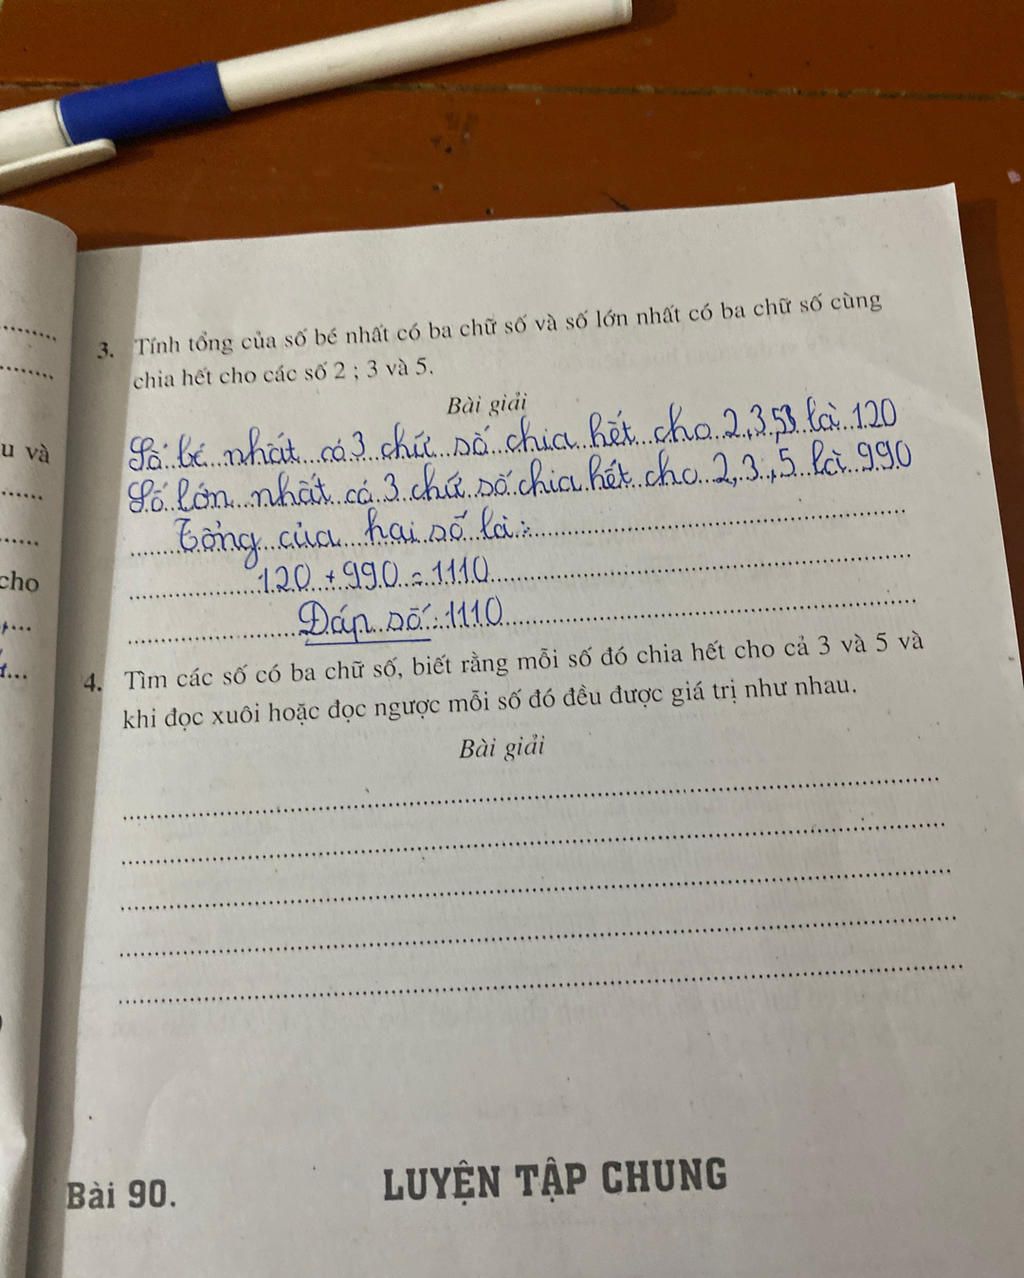 3. Tính tổng của số bé nhất có ba chữ số và số lớn nhất có ba chữ số cùng
chia hết cho các số 2 ; 3 và 5.
Bài giải
Số bé nhất có 3 chữ số chia hết cho 2,3,5 là 120
Số lớn nhất có 3 chữ số chia hết cho 2,3,5 là 990
Tổng của hai số là:
120 + 990 = 1110
Đáp số: 1110
4. Tìm các số có ba chữ số, biết rằng mỗi số đó chia hết cho cả 3 và 5 và
khi đọc xuôi hoặc đọc ngược mỗi số đó đều được giá trị như nhau.
Bài giải
u và
cho
Bài 90. LUYỆN TẬP CHUNG